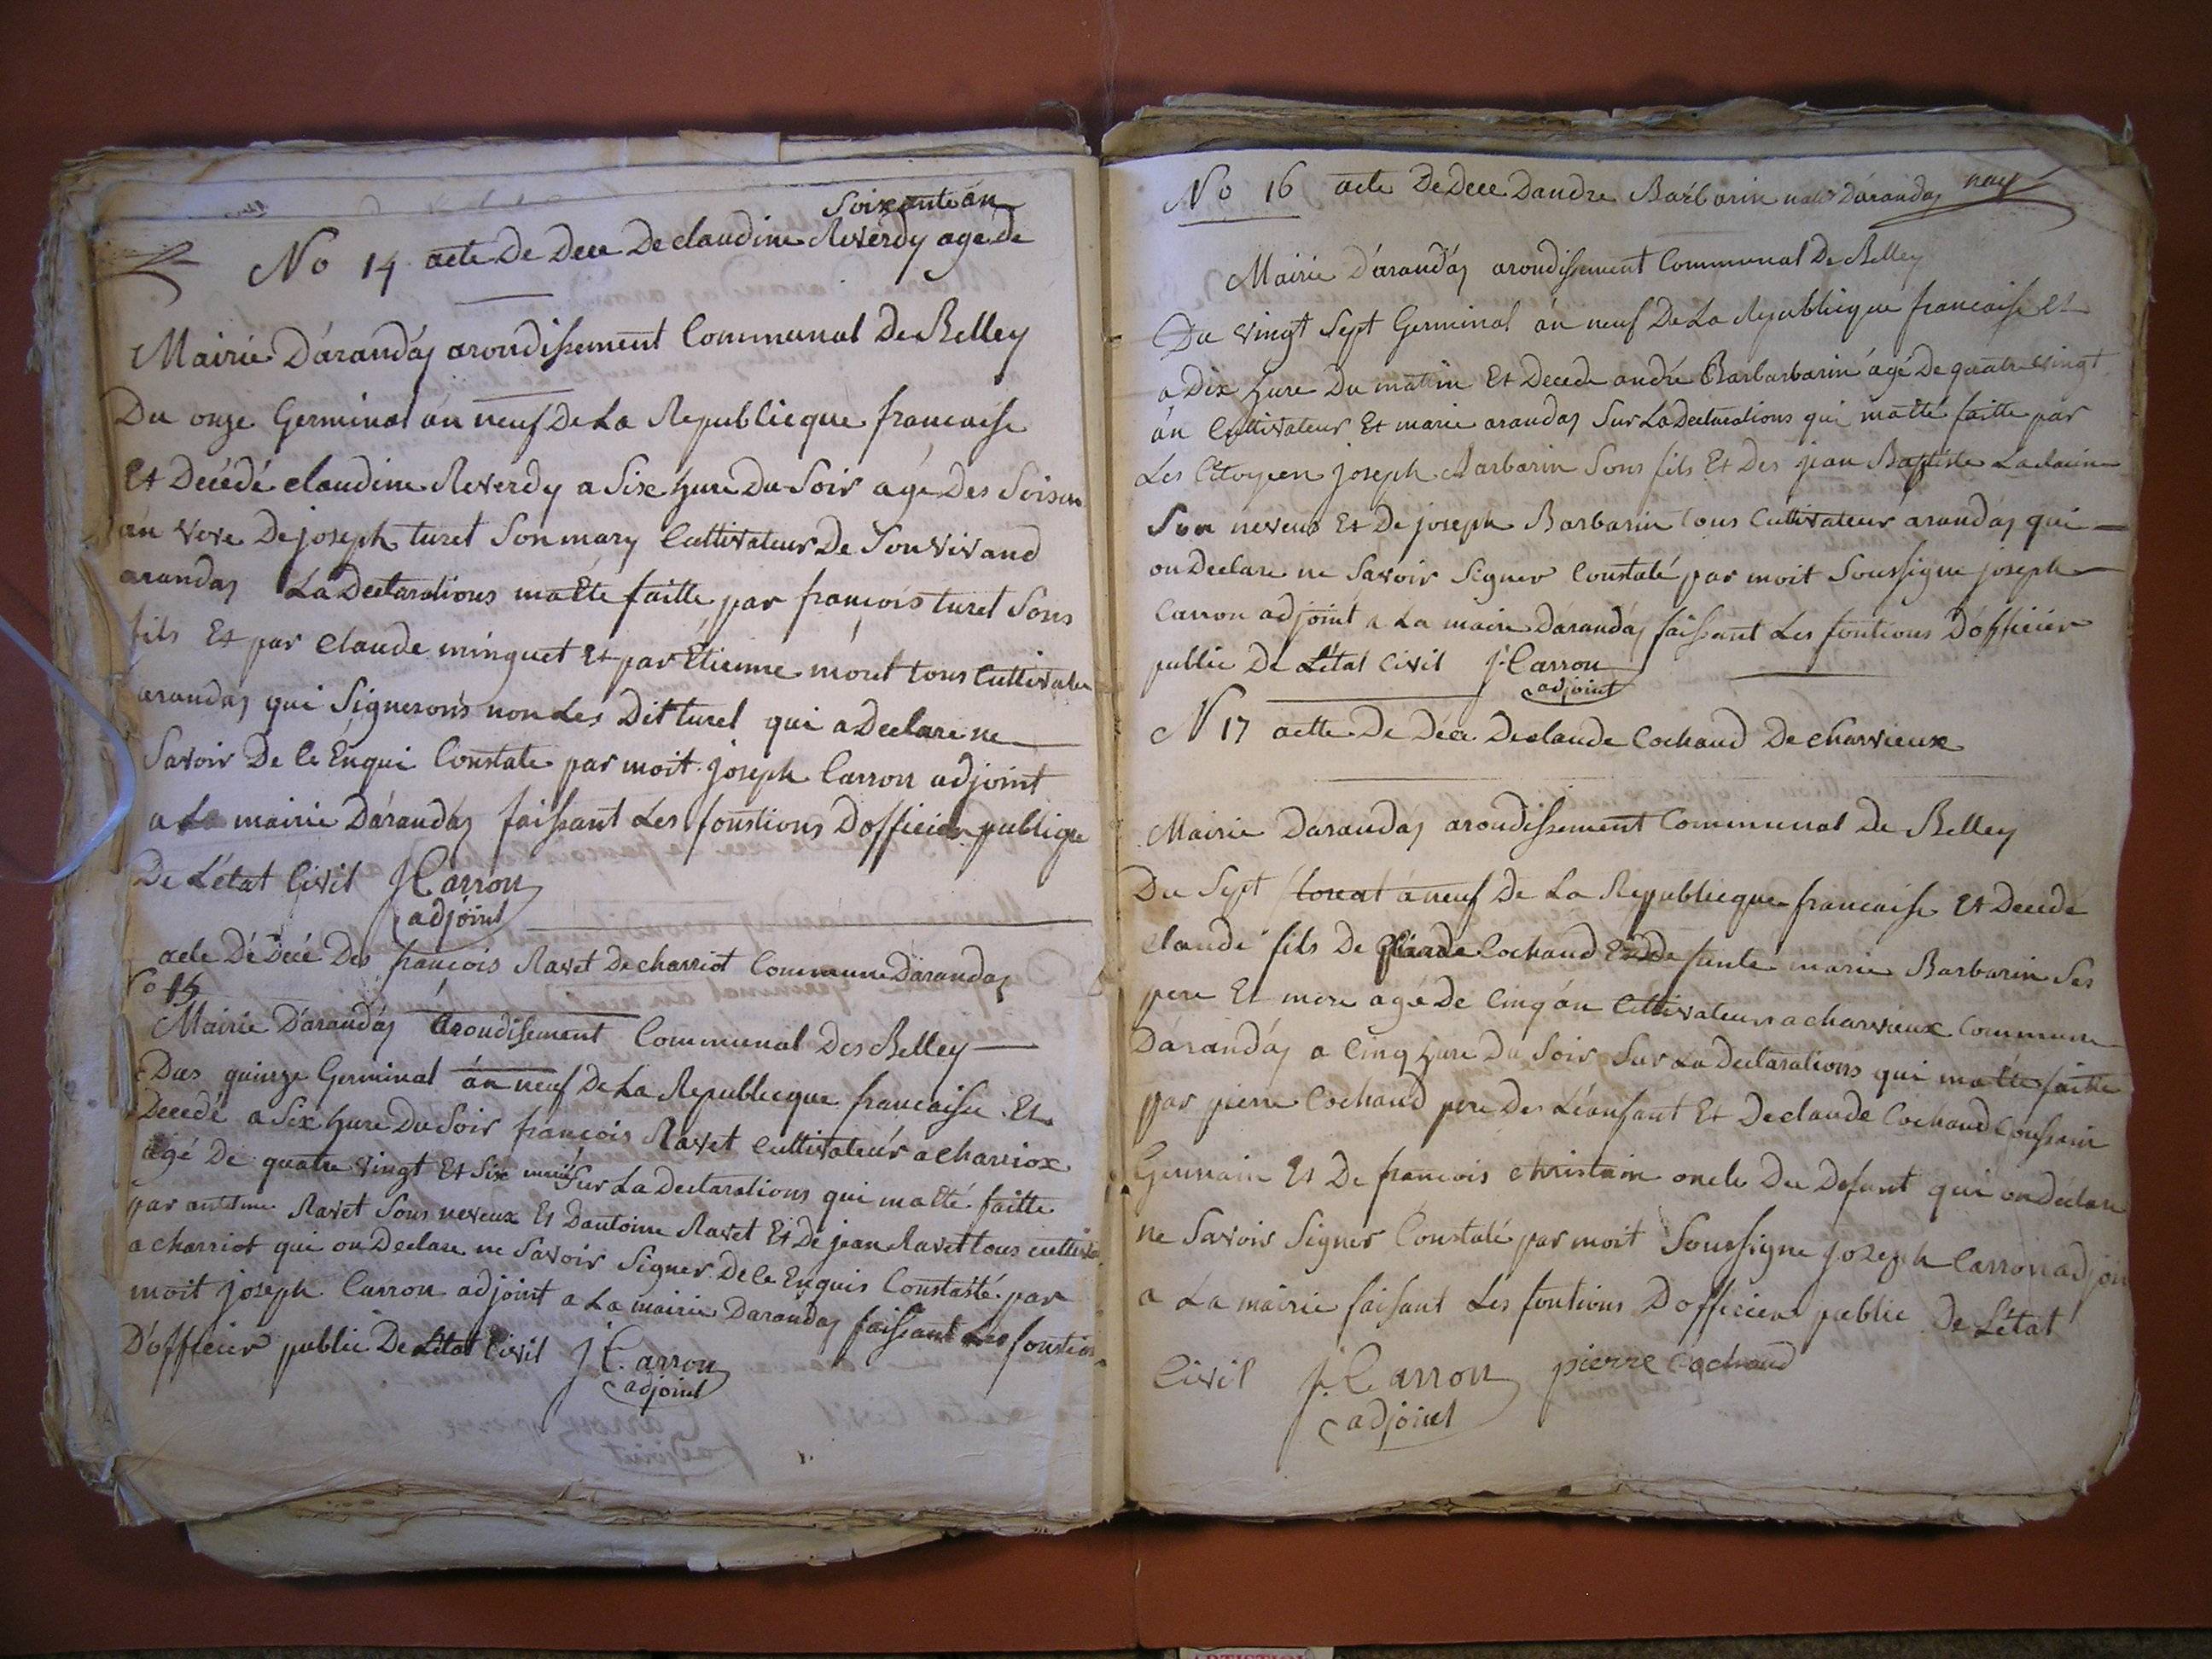 Soixante án
No 14 acte De Dece De claudine Reverdy age de
Mairie D'arandas arondissement Communal De Belley
Du onze Germinal án neuf De La Republicque francaise
Et Décédé claudine Reverdy a Six hure Du Soir agé Des Soisan
án veve De joseph turel Son mary Cultivateur De Son vivand
arandas La Declarations matte faitte par françois turel Sons
fils Et par Claude minguet Et par Etienne morel tous Cultivateu
arandas qui Signerons non Les Dit turel qui a Declare ne
Savoir De Ce Enqui Constate par moit joseph Carron adjoint
a La mairie D'arandas faissant Les fonstions D'officier publique
De L'état Civil J Carron
adjoint
acte Dé Décé Des françois Ravet De charriot Commune D'arandas
No 15
Mairie D'arandas arondisement Communal Des Belley
Dus quinze Germinal án neuf De La Republicque francaise Et
Decedé a Six hure Du Soir françois Ravet Cultivateur a charriox
agé De quatre vingt Et Six Sur La Declarations qui matté faitte
par antelme Ravet Sons neveux Et Dantoine Ravet Et De jean Ravet tous cultiva
a charriot qui on Declare ne Savoir Signer De Ce Enquis Constaté par
moit joseph Carron adjoint a La mairie D'arandas faissant Les fonstion
D'officier public De L'état Civil J Carron
adjoint
No 16 acte De Dece Dandre Barbarin D'arandas
Mairie D'arandas arondissement Communal De Belley
Du vingt Sept Germinal án neuf De La Republicque francaise Et
a Dix hure Du mattin Et Decede andré Barbarbarin agé De quatre vingt
án Cultivateur Et marie arandas Sur La Declarations qui matté faitte par
Les Citoyen joseph Barbarin Sons fils Et Des jean Baptiste
Son neveux Et De joseph Barbarin tous Cultivateur arandas qui
on Declare ne Savoir Signer Constaté par moit Soussigne joseph
Carron adjoint a La mairie D'arandas faissant Les fontions D'officier
public De L'état Civil J Carron
adjoint
N 17 actte De Déce De claude Cochaud De charvieux
Mairie D'arandas arondissement Communal De Belley
Du Sept floreal á neuf De La Republicque francaise Et Décédé
claude fils De Cochaud Et De funte marie Barbarin Ses
pere Et mere agé De Cinq án Cultivateur a charvieux Commune
D'arandas a Cinq hure Du Soir Sur La Declarations qui matte faitte
par pierre Cochaud pere Des L'éanfant Et De claude Cochaud Coussain
Germain Et De francois christain oncle Du Defunt qui on Déclare
ne Savoir Signer Constaté par moit Soussigne joseph Carron adjoin
a La mairie faisant Les fontions D'officier public De L'état
Civil J Carron pierre Cochaud
adjoint